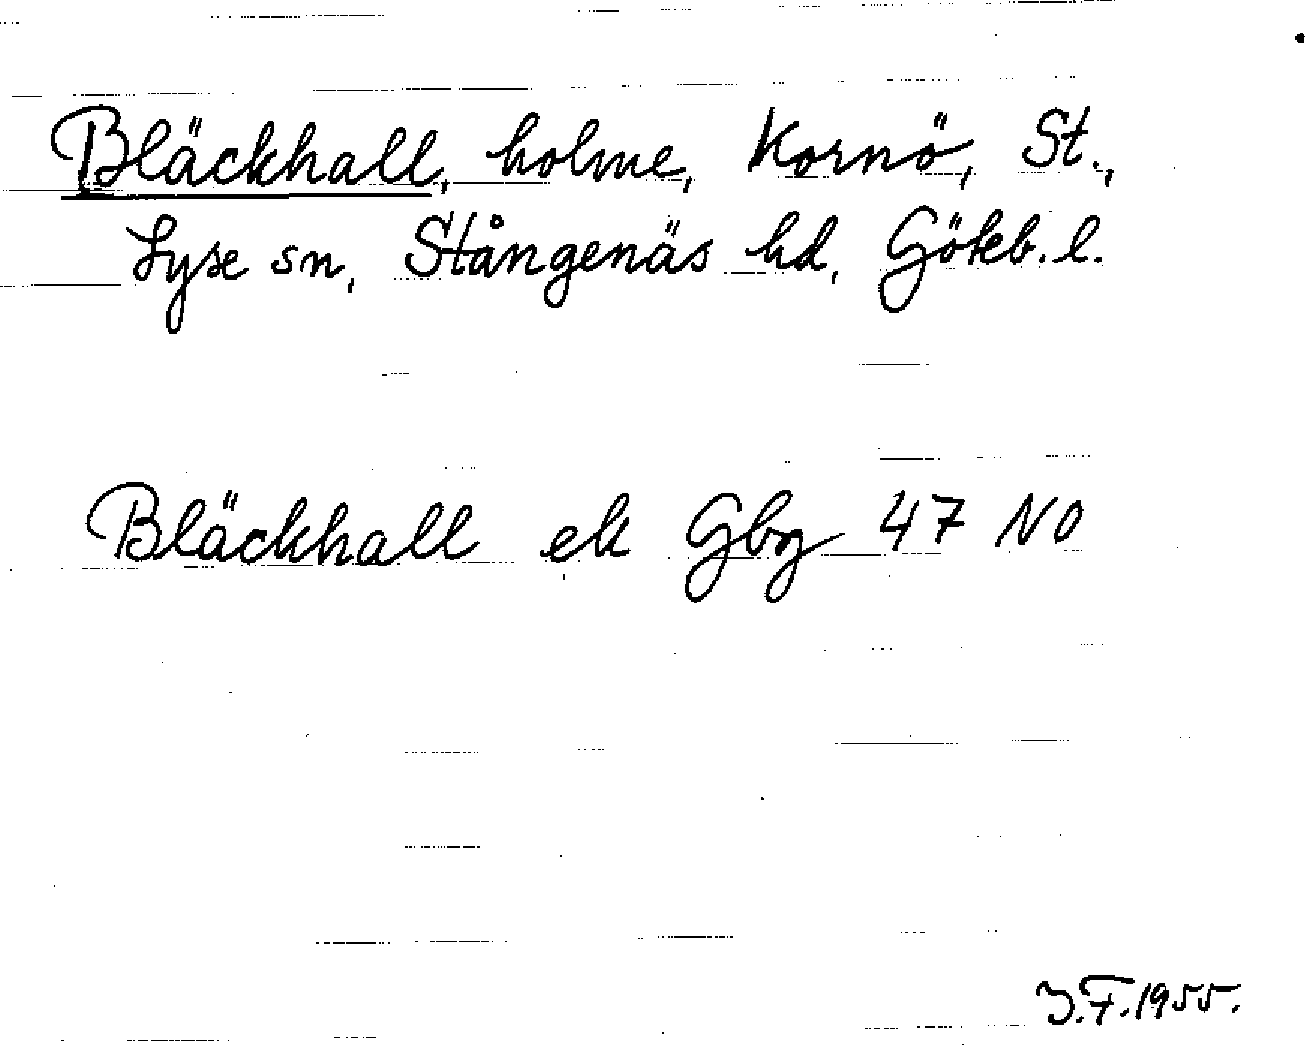 Bläckhall, holme, Kornö, St.,
Lyse sn, Stångenäs hd, Göteb. l.
Bläckhall ek Gbg 47 NO
J.F. 1955.